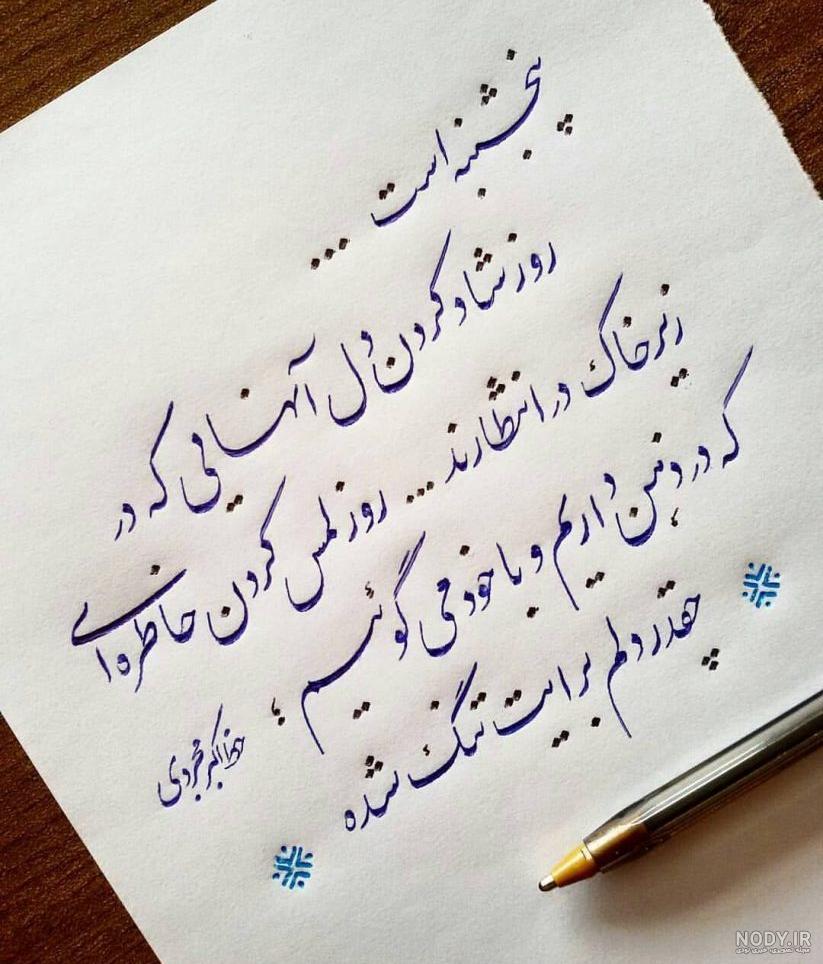 پنجشنبه است ...
روز شاد کردن دل آنهایی که در
زیر خاک در انتظارند ... روز لمس کردن خاطره ای
که در ذهن داریم و با خود می گوئیم ؛
چقدر دلم برایت تنگ شده
NODY.IR